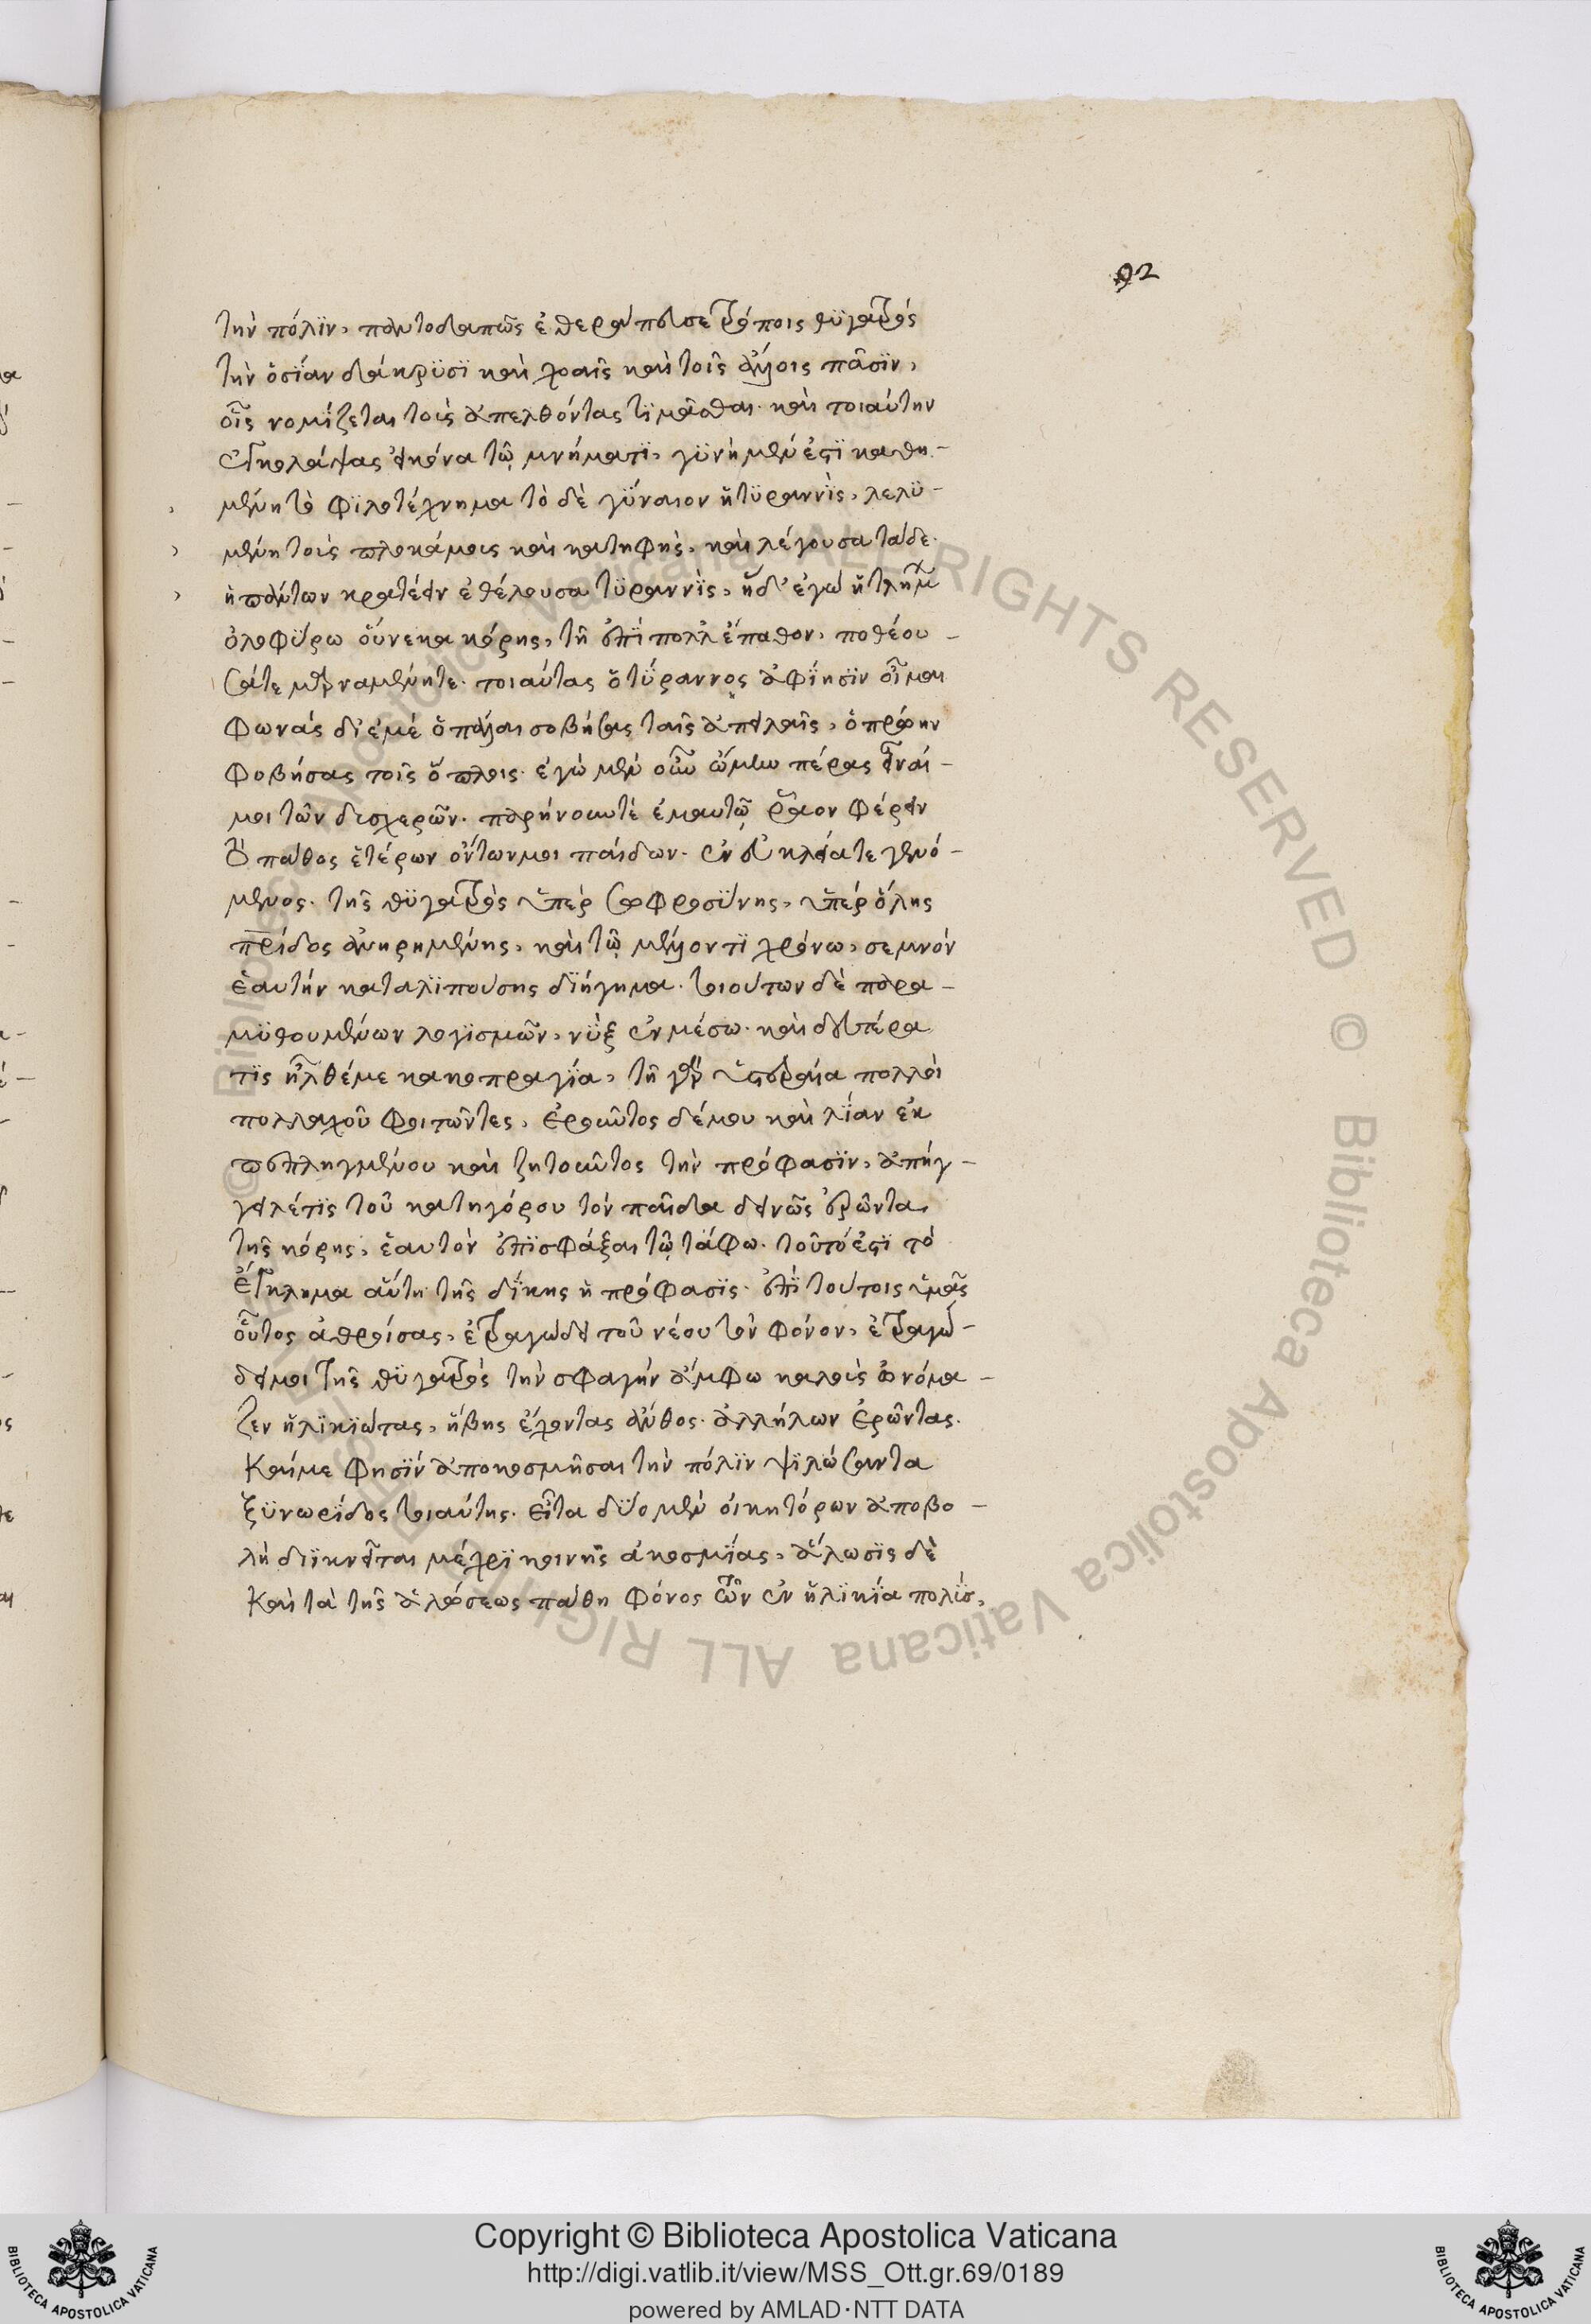 92
τὴν πόλϊν, παντοδαπῶς ἐθεράπευσε τρόποις θϋγατρὸς
τὴν ὁσΐαν δάκρϋσϊ καὶ χοαῖς καὶ τοῖς ἄλλοις πᾶσϊν,
οἷς νομίζεται τοὺς ἀπελθόντας τϊμᾶσθαι. καὶ τοιαύτην
ἐγκολάψας εἰκόνα τῷ μνήματϊ, γϋνὴ μὲν ἐστϊ καθη-
μένη τὸ φϊλοτέχνημα τὸ δὲ γΰναιον ἡ τϋραννὶς, λελϋ-
μένη τοὺς πλοκάμους καὶ κατηφὴς, καὶ λέγουσα τάδε.
ἡ πάντων κρατέειν ἐθέλουσα τϋραννὶς, ἥδ' ἐγὼ ἡ τλήμων
ὀλοφΰρω οὕνεκα κόρης, τῇ ἐπϊ πολλ' ἔπαθον, ποθέου-
σάτε μαρναμένητε. τοιαύτας ὁ τΰραννος ἀφΐησϊν οἶμαι
φωνὰς δι' ἐμὲ ὁ πάλαι σοβήσας ταῖς ἀπειλαῖς, ὁ πρώην
φοβήσας τοῖς ὅπλοις. ἐγὼ μὲν οὖν ᾤμην πέρας εἶναί
μοι τῶν δυσχερῶν. παρήνουν τὲ ἐμαυτῷ ῥᾶον φέρειν
τὸ πάθος ἑτέρων ὄντων μοι παίδων. ἐν εὐκλείᾳ τε γενό-
μενος. τῆς θϋγατρὸς ὑπὲρ σωφροσΰνης, ὑπὲρ ὅλης
πατρίδος ἀνῃρημένης, καὶ τῷ μέλλοντϊ χρόνω, σεμνὸν
ἑαυτὴν καταλϊπούσης διήγημα. τοιούτων δὲ παρα-
μϋθουμένων λογϊσμῶν, νὺξ ἐν μέσω. καὶ δευτέρα
τϊς ἦλθέ με κακοπραγΐα, τῇ γὰρ ὑστεραία πολλοὶ
πολλαχοῦ φοιτῶντες, ἐροῦντος δέ μου καὶ λΐαν ἐκ
πεπληγμένου καὶ ζητοῦντος τὴν πρόφασϊν, ἀπήγ-
γειλέ τϊς τοῦ κατηγόρου τὸν παῖδα δεινῶς ἐρῶντα
τῆς κόρης, ἑαυτὸν ἐπϊσφάξαι τῷ τάφω. τοῦτό ἐστϊ τὸ
ἔγκλημα αὕτη τῆς δΐκης ἡ πρόφασϊς. ἐπὶ τούτοις ὑμᾶς
οὗτος ἀθροίσας, ἐτραγώδει τοῦ νέου τὸν φόνον, ἐτραγώ-
δει μοι τῆς θϋγατρὸς τὴν σφαγὴν ἄμφω καλοὺς ὀνόμα-
ζεν ἡλϊκϊώτας, ἥβης ἔχοντας ἄνθος. ἀλλήλων ἐρῶντας.
Κᾀμέ φησϊν ἀποκοσμῆσαι τὴν πόλϊν ψϊλώσαντα
ξϋνωρΐδος τοιαύτης. εἶτα δΰο μὲν οἰκητόρων ἀποβο-
λὴ διϊκνεῖται μέχρϊ κοινῆς ἀκοσμΐας, ἅλωσϊς δὲ
καὶ τὰ τῆς ἁλώσεως πάθη φόνος τῶν ἐν ἡλϊκΐα πολϊσ,
Copyright © Biblioteca Apostolica Vaticana
http://digi.vatlib.it/view/MSS_Ott.gr.69/0189
powered by AMLAD·NTT DATA